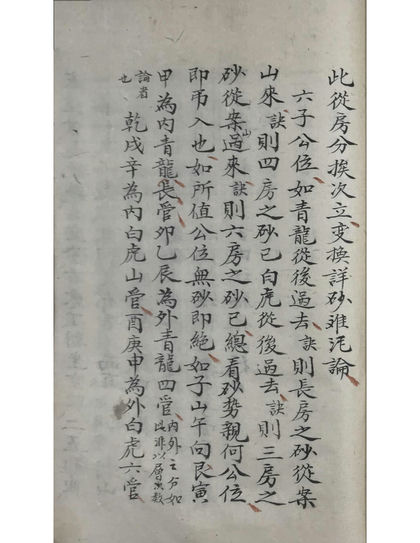 此從房分挨次立变換詳砂难泥論
六子公位如青龍從後過去訣則長房之砂從案
山來訣則四房之砂已白虎從後過去訣則三房之
砂從案山過來訣則六房之砂已總看砂勢親何公位
即弔入也如所值公位無砂即絕如子山午向艮寅
甲為内青龍長管夘乙辰為外青龍四管内外之分如
此非以層数
論者
也乾戌辛為内白虎山管酉庚申為外白虎六管